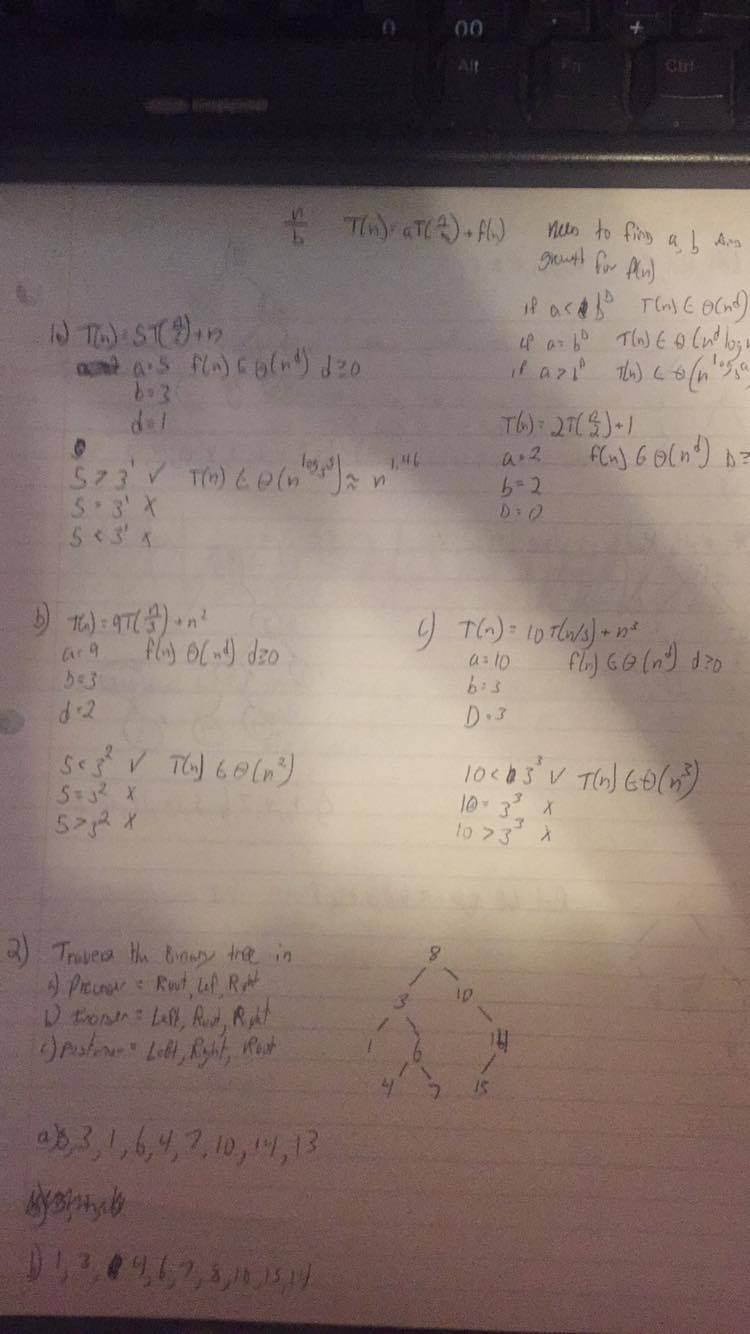 0 00 . +
Alt Fn Ctrl
n/b T(n) = aT(n/b) + f(n) need to find a, b and
growth for f(n)
if a < b^D T(n) ∈ Θ(n^d)
if a = b^D T(n) ∈ Θ(n^d log n
if a > b^D T(n) ∈ Θ(n^log_b a
1a) T(n) = 5T(
) + n
a = 5 f(n) ∈ Θ(n^d) d ≥ 0
b = 3
d = 1
5 > 3^1 ✓ T(n) ∈ Θ(n^log_3 5) ≈ n^1.46
5 = 3^1 X
5 < 3^1 X
T(n) = 2T(n/2) + 1
a = 2 f(n) ∈ Θ(n^d) D ≥
b = 2
D = 0
b) T(n) = 9T(n/3) + n^2
a = 9 f(n) Θ(n^d) d ≥ 0
b = 3
d = 2
5 < 3^2 ✓ T(n) ∈ Θ(n^2)
5 = 3^2 X
5 > 3^2 X
c) T(n) = 10T(n/3) + n^3
a = 10 f(n) ∈ Θ(n^d) d ≥ 0
b = 3
D = 3
10 < 3^3 ✓ T(n) ∈ Θ(n^3)
10 = 3^3 X
10 > 3^3 X
2) Traverse the Binary tree in
a) Preorder = Root, Left, Right
b) Inorder = Left, Root, Right
c) Postorder = Left, Right, Root
8
3 10
1 6 14
4 7 13
a) 8, 3, 1, 6, 4, 7, 10, 14, 13
b) 1, 3, 4, 6, 7, 8, 10, 13, 14